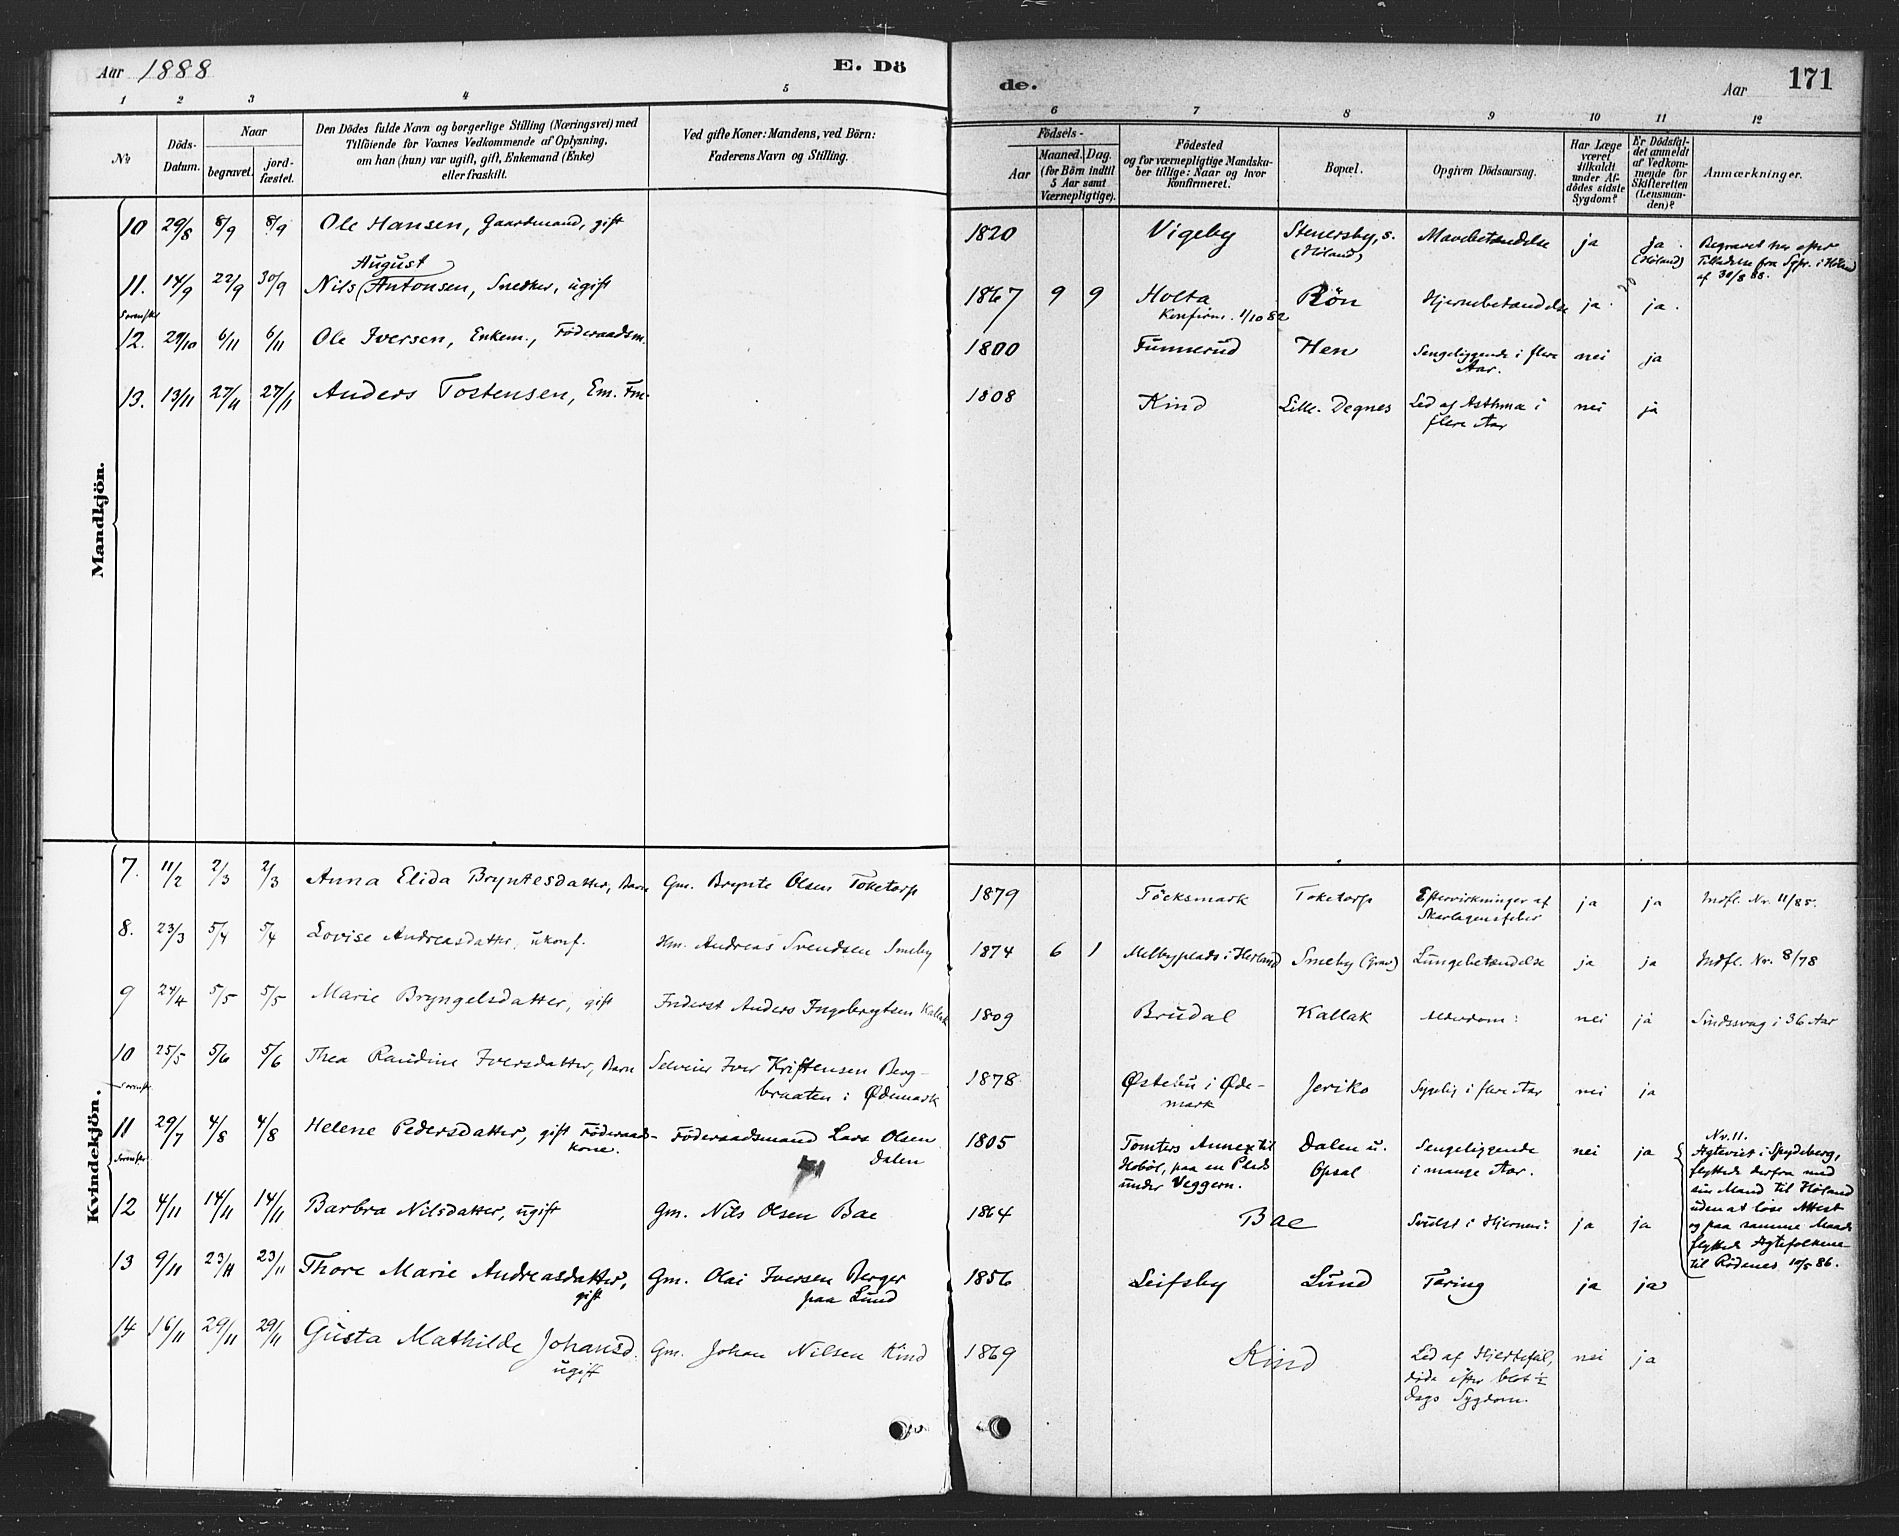 Aar 1888
E. Dö
de.
Aar
171
1 2 3 4 5 6 7 8 9 10 11 12
No
Döds-
Datum.
Naar
begravet.
jord-
fæstet.
Den Dödes fulde Navn og borgerlige Stilling (Næringsvei) med
Tilföiende for Voxnes Vedkommende af Oplysning,
om han (hun) var ugift, gift, Enkemand (Enke)
eller fraskilt.
Ved gifte Koner: Mandens, ved Börn:
Faderens Navn og Stilling.
Födsels-
Aar
Maaned. Dag.
(for Börn indtil
5 Aar samt
Værnepligtige).
Födested
og for værnepligtige Mandska-
ber tillige: Naar og hvor
konfirmeret.
Bopæl.
Opgiven Dödsaarsag.
Har Læge
været
tilkaldt
under Af-
dödes sidste
Sygdom?
Er Dödsfal-
det anmeldt
af Vedkom-
mende for
Skifteretten
(Lensman-
den)?
Anmærkninger.
Mandkjön.
10 29/8 8/9 8/9 Ole Hansen, Gaardmand, gift 1820 Vigeby Stenersby, s. Mavebetændelse ja ja. Begravet her efter
(Höland) (Höland) Tilladelse fra Spr. i Höland
af 30/8 88.
August
11. 14/9 22/9 30/9 Nils (Antonsen, Snedker, ugift 1867 9 9 Holta Rön Hjernebetændelse ja. ja.
Konfirm. 1/10 82
12. 29/10 6/11 6/11 Ole Iversen, Enkem., Föderaadsm. 1800 Funnerud Hen Sengeliggende i flere nei ja
Aar.
13. 13/11 27/11 27/11 Anders Tostensen, Em. Fm. 1808 Kind Lille-Degnes Led af Asthma i nei ja
flere Aar
Kvindekjön.
7. 11/2 2/3 2/3 Anna Elida Bryntesdatter, Barn Gm. Brynte Olsen Toketorp 1879 Töcksmark Toketorp Eftervirkninger af ja ja Indfl. Nr. 11/85.
Skarlagensfeber
8. 23/3 5/4 5/4 Lovise Andreasdatter, ukonf. Hm. Andreas Svendsen Smeby 1874 6 1 Melbyplads i Herland Smeby (Grav) Lungebetændelse ja ja Indfl. Nr. 8/78
9 24/4 5/5 5/5 Marie Bryngelsdatter, gift Inderst Anders Ingebregtsen Kallak 1809 Brudal Kallak Alderdom: nei ja Sindssvag i 36 Aar
10 25/5 5/6 5/6 Thea Randine Iversdatter, Barn Selveier Iver Kristensen Berg-
braaten i Ødemark 1878 Østebu i Øde- Jeriko Sygelig i flere Aar nei ja
mark
11 29/7 4/8 4/8 Helene Pedersdatter, gift Föderaads- Föderaadsmand Lars Olsen 1805 Tomters Annex til Dalen u. Sengeliggende nei ja
kone. Dalen Hoböl, paa en Plads Opsal i mange Aar.
under Veggern.
Nr. 11.
Ægteviet i Spydeberg,
flyttede derfra med
sin Mand til Höland
uden at löse Attest
og paa samme Maade
flyttede Ægtefolkene
til Rödenes 10/5 86.
12 4/11 14/11 14/11 Barbra Nilsdatter, ugift Gm. Nils Olsen Bae 1864 Bae Svulst i Hjernen: ja ja
13 9/11 23/11 23/11 Thore Marie Andreasdatter, Gm. Olai Iversen Berger 1856 Leifsby Lund Tæring ja ja
gift paa Lund
14 16/11 29/11 29/11 Gusta Mathilde Johansd. Gm. Johan Nilsen Kind 1869 Kind Led af Hjertefeil, nei ja
ugift döde efter blot ½
Dags Sygdom.